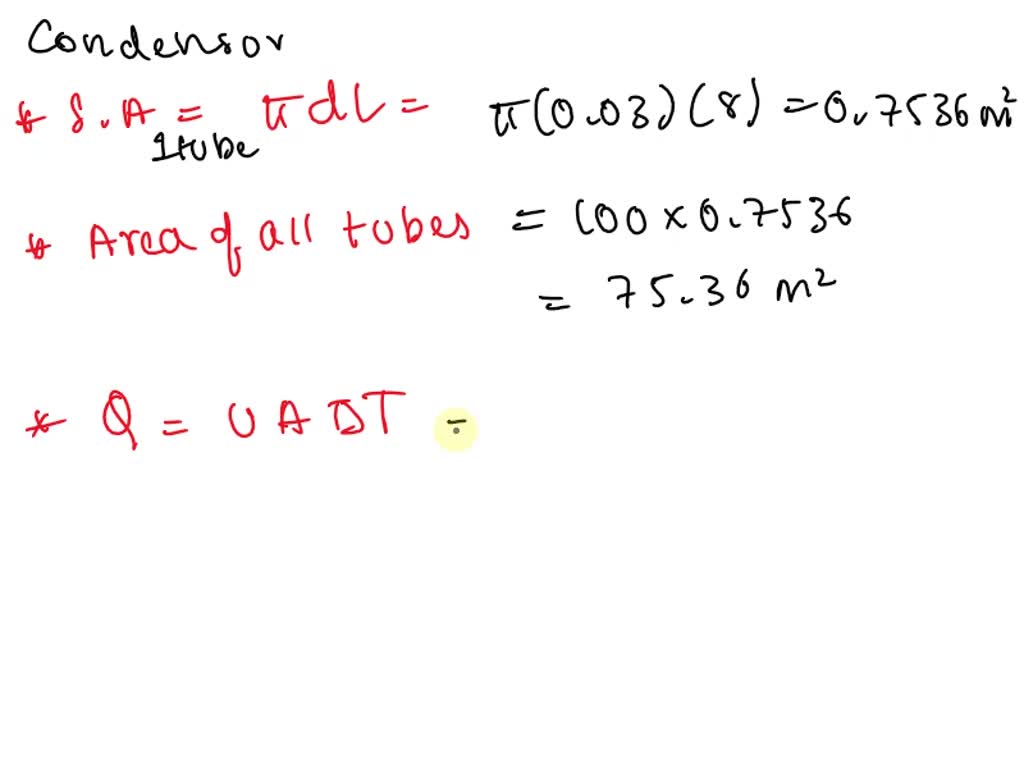 Condensor
* S.A 1tube = πdL = π(0.03)(8) = 0.7536 m²
* Area of all tubes = 100 × 0.7536
= 75.36 m²
* Q = UAΔT =